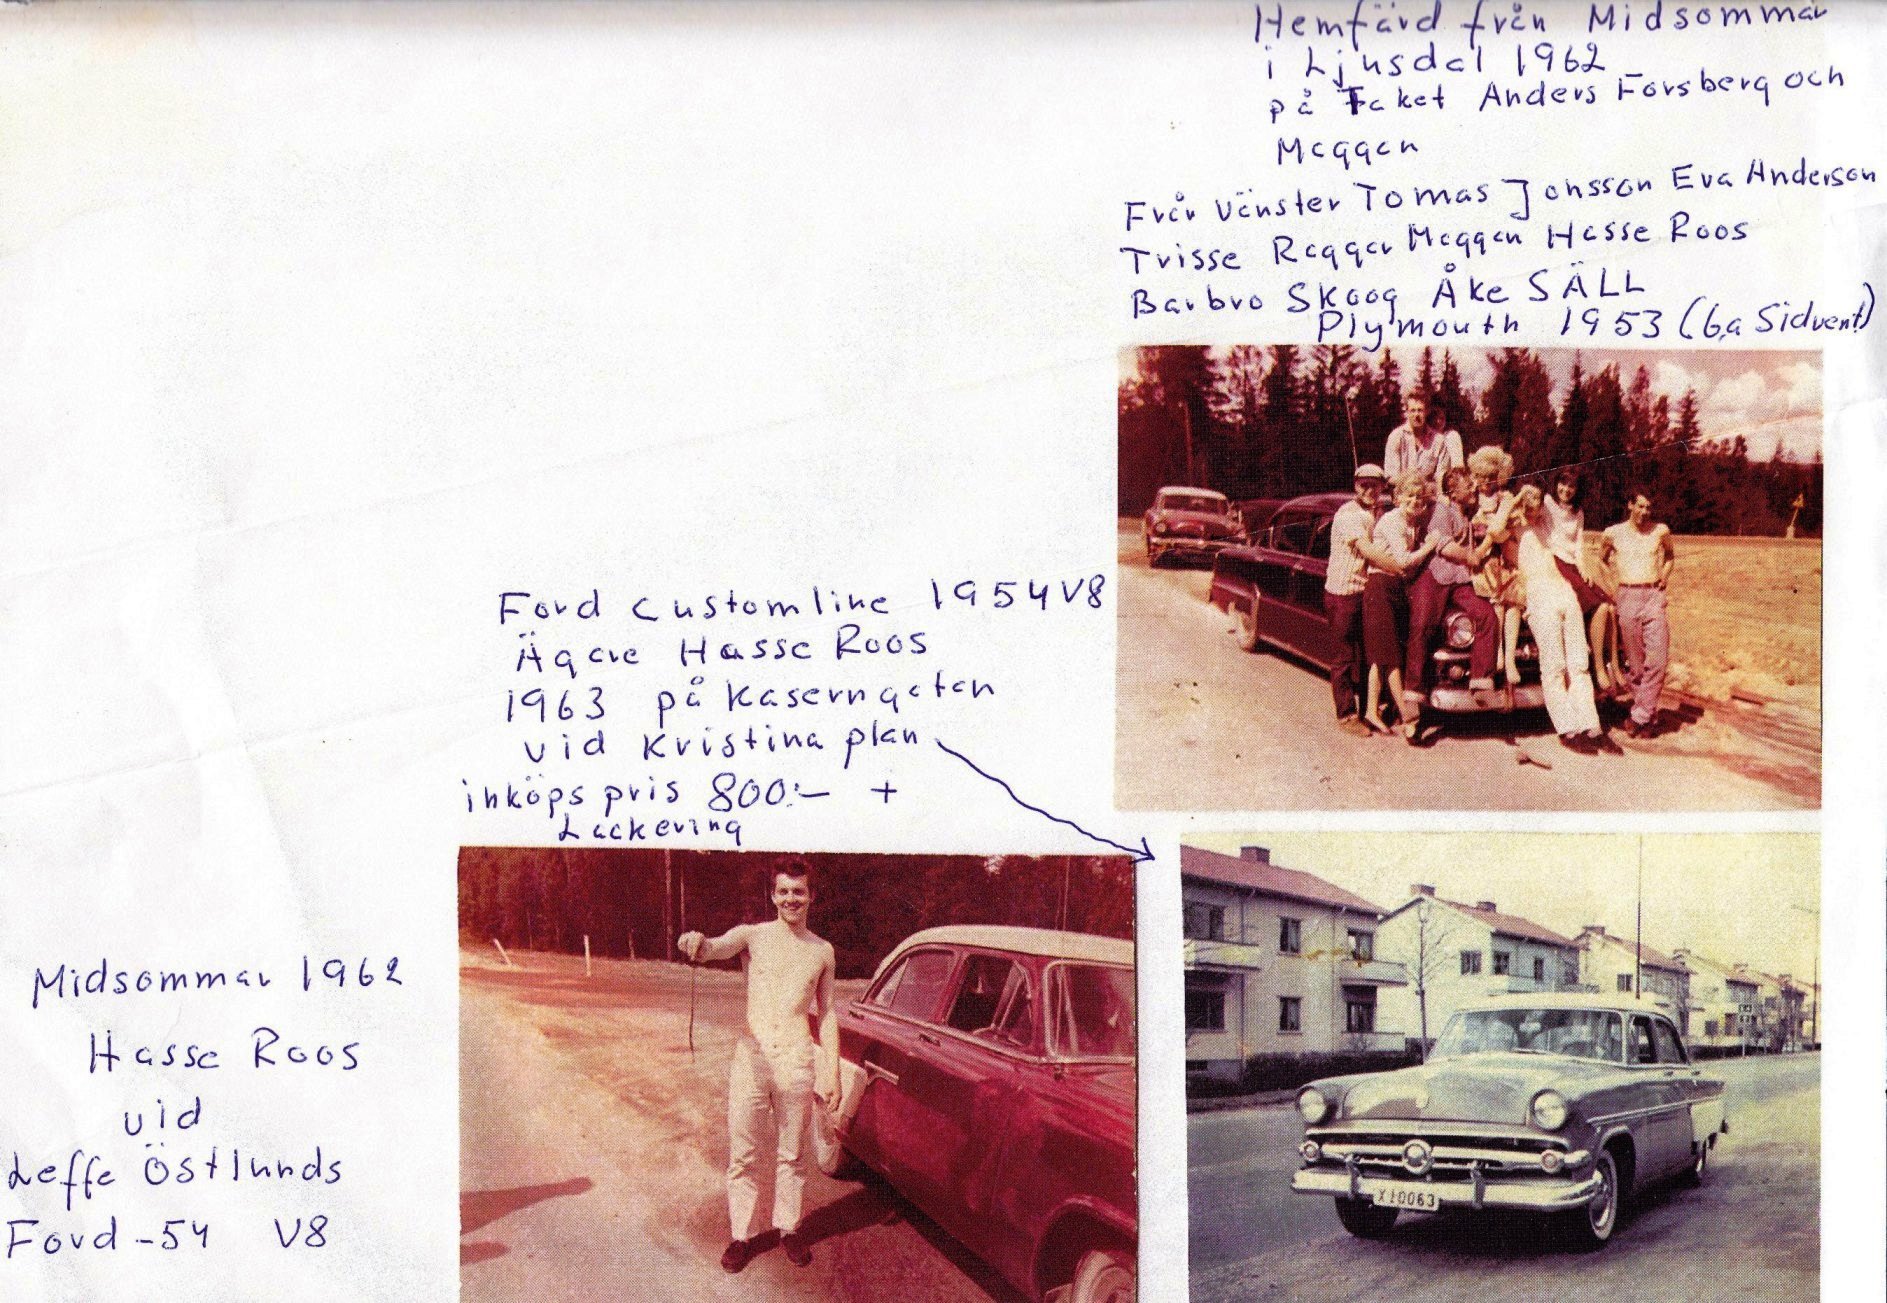 Hemfärd från Midsommar
i Ljusdal 1962
på Taket Anders Forsberg och
Maggan
Från Vänster Tomas Jonsson Eva Anderson
Trisse Raggar Maggan Hasse Roos
Barbro Skoog Åke SÄLL
Plymouth 1953 (6a Sidvent)
Ford Customline 1954 V8
Ägare Hasse Roos
1963 på Kaserngatan
vid Kristina plan
inköps pris 800:- +
Lackering
Midsommar 1962
Hasse Roos
vid
Leffe Östlunds
Ford -54 V8
X10063